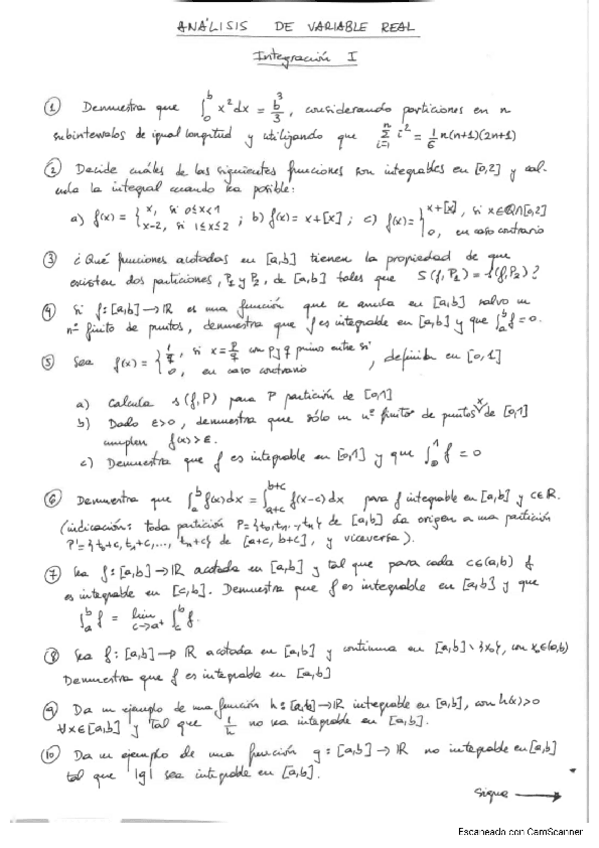 ANÁLISIS DE VARIABLE REAL
Integración I
① Demuestra que ∫₀ᵇ x² dx = b³/3, considerando particiones en n
subintervalos de igual longitud y utilizando que Σᵢ₌₁ⁿ i² = 1/6 n(n+1)(2n+1)
② Decide cuáles de las siguientes funciones son integrables en [0,2] y cal-
cula la integral cuando sea posible:
a) f(x) = { x, si 0≤x<1 ; x-2, si 1≤x≤2 ; b) f(x) = x+[x] ; c) f(x) = { x+[x], si x∈ℚ∩[0,2] ; 0, en caso contrario
③ ¿Qué funciones acotadas en [a,b] tienen la propiedad de que
existen dos particiones, P₁ y P₂, de [a,b] tales que S(f,P₁) = s(f,P₂)?
④ Si f: [a,b] → ℝ es una función que se anula en [a,b] salvo un
nº finito de puntos, demuestra que f es integrable en [a,b] y que ∫ₐᵇ f = 0.
⑤ Sea f(x) = { 1/q, si x = p/q con p y q primo entre sí ; 0, en caso contrario , definida en [0,1]
a) Calcula s(f,P) para P partición de [0,1]
b) Dado ε>0, demuestra que sólo un nº finito de puntos x de [0,1]
cumplen f(x) > ε.
c) Demuestra que f es integrable en [0,1] y que ∫₀¹ f = 0
⑥ Demuestra que ∫ₐᵇ f(x)dx = ∫ₐ₊c^(b+c) f(x-c) dx para f integrable en [a,b] y c∈ℝ.
(indicación: toda partición P={t₀,t₁,..,tₙ} de [a,b] da origen a una partición
P'={t₀+c, t₁+c,..., tₙ+c} de [a+c, b+c], y viceversa).
⑦ Sea f: [a,b] → ℝ acotada en [a,b] y tal que para cada c∈(a,b) f
es integrable en [c,b]. Demuestra que f es integrable en [a,b] y que
∫ₐᵇ f = lim c→a⁺ ∫cᵇ f.
⑧ Sea f: [a,b] → ℝ acotada en [a,b] y continua en [a,b]∖{x₀}, con x₀∈(a,b)
Demuestra que f es integrable en [a,b]
⑨ Da un ejemplo de una función h: [a,b] → ℝ integrable en [a,b], con h(x)>0
∀x∈[a,b] y tal que 1/h no sea integrable en [a,b].
⑩ Da un ejemplo de una función g: [a,b] → ℝ no integrable en [a,b]
tal que |g| sea integrable en [a,b].
Sigue →
Escaneado con CamScanner